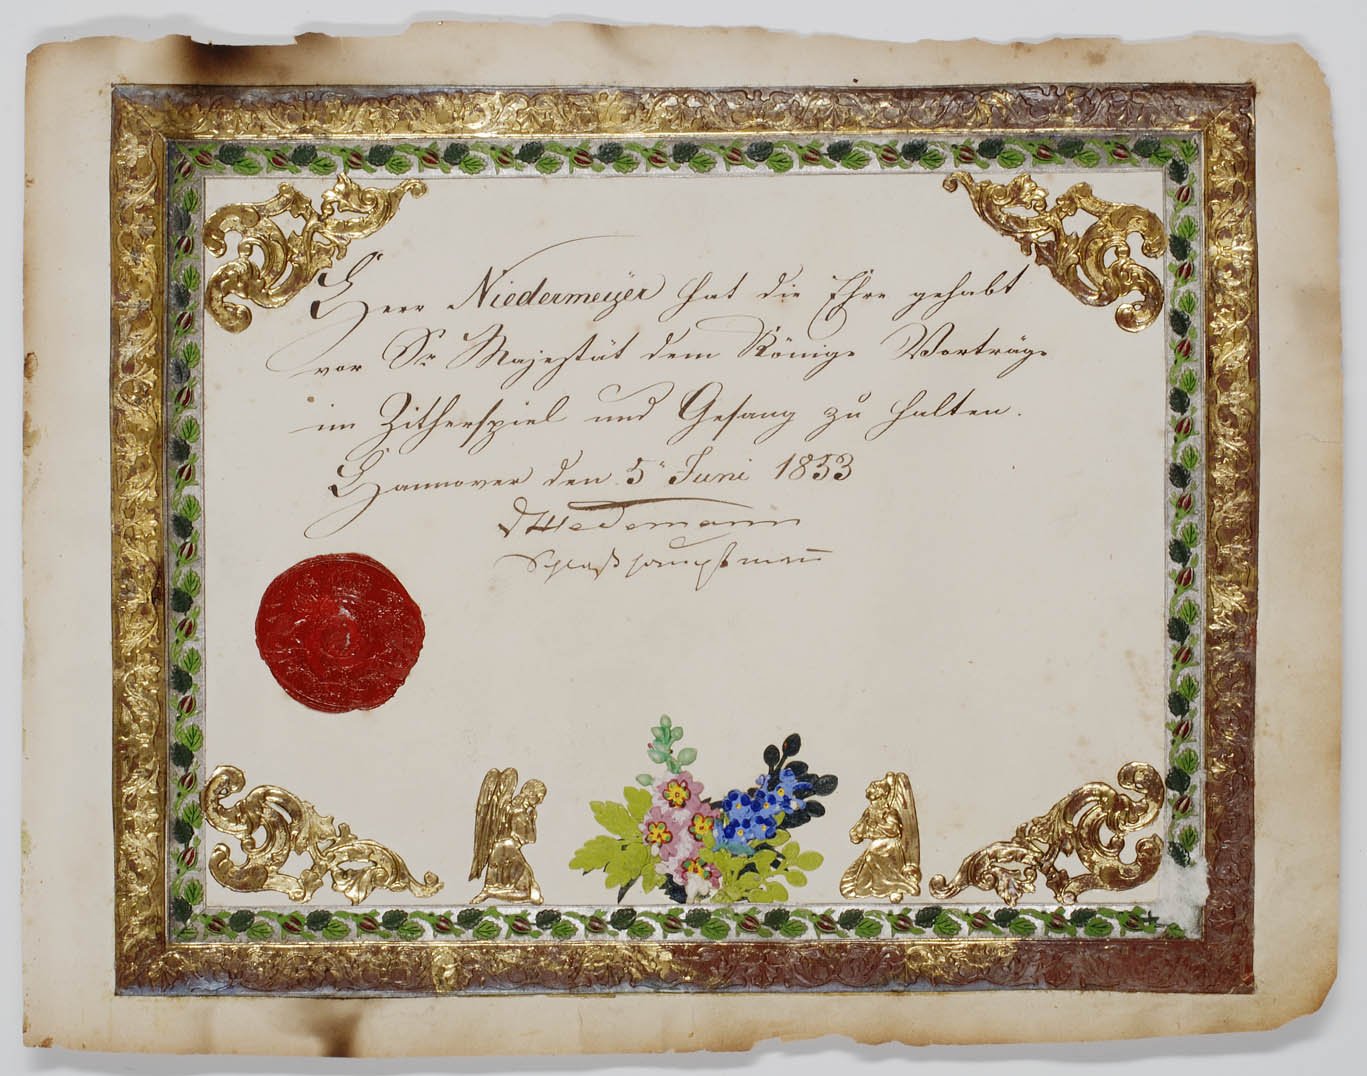 Herr Niedermeÿer hat die Ehre gehabt
vor Sr Majestät dem Könige Vorträge
im Zitherspiel und Gesang zu halten.
Hannover den 5t Juni 1853
Wedemann
Schloßhauptmann